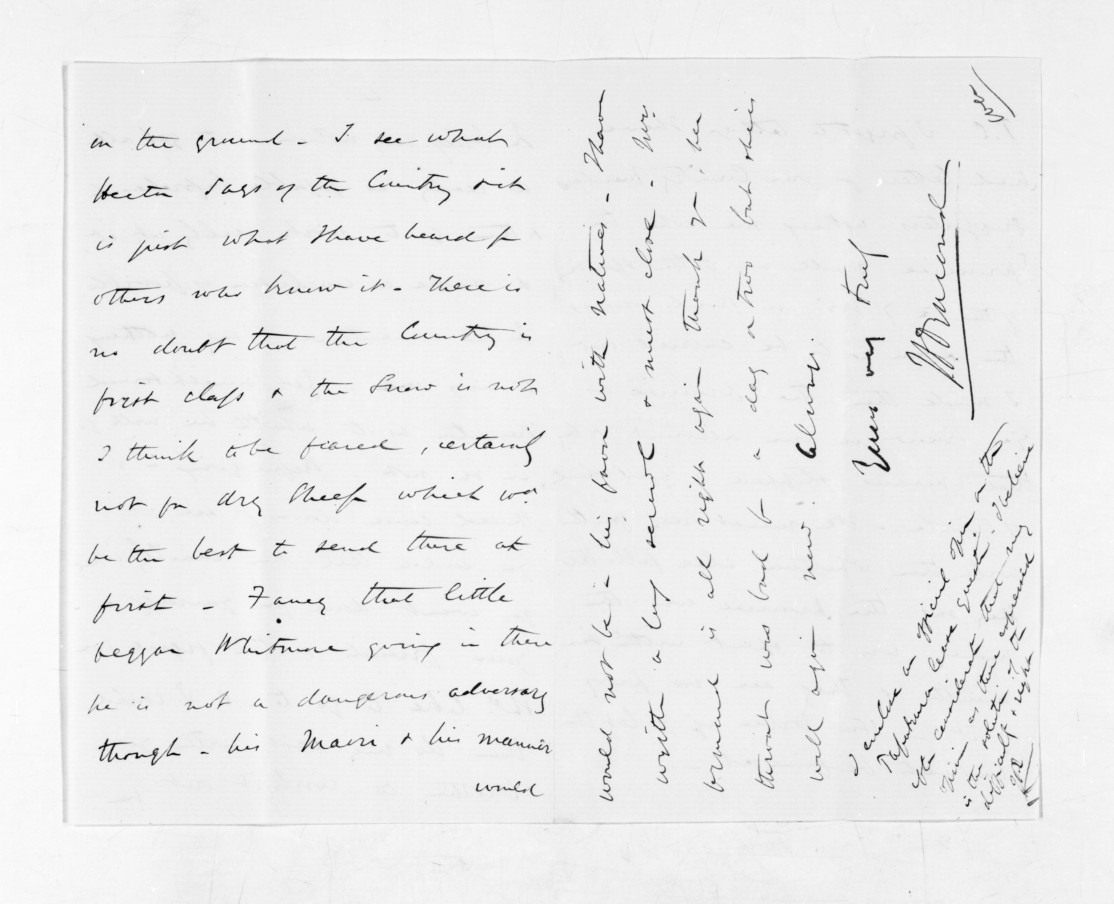 on the ground - I see what
Hector says of the Country & it
is just what I have heard fm
others who knew it - There is
no doubt that the Country is
first class & the Snow is not
I think to be feared, certainly
not for dry Sheep which wd
be the best to send there at
first - Fancy that little
beggar Whitmore going in there
he is not a dangerous adversary
though - his Maori & his manner
would
would not be in his favor with natives - I have
written a long scrawl & must close - Mrs
Ormond is all right again thank you her
throat was bad for a day or two but she is
well again now always.
Yours very truly
J D Ormond
I enclose an Official Min on the
Tapuhara lease question
the consideration I believe
Min as there that my
is the solution of the
difficulty & right